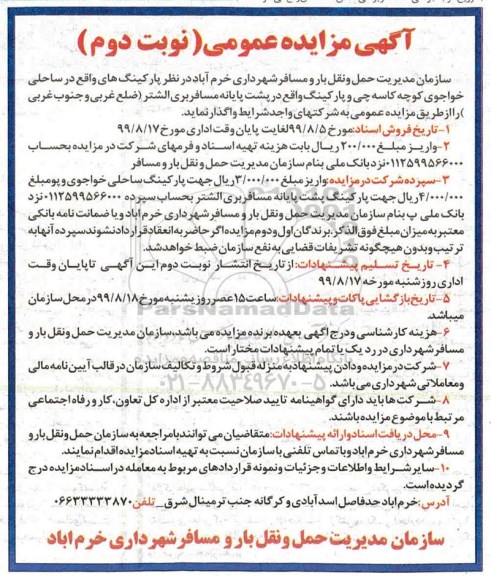 آگهی مزایده عمومی ( نوبت دوم )
سازمان مدیریت حمل ونقل بار و مسافر شهرداری خرم آباد در نظر پارکینگ های واقع در ساحلی
خواجوی کوچه کاسه چی و پارکینگ واقع در پشت پایانه مسافربری الشتر (ضلع غربی و جنوب غربی
) را از طریق مزایده عمومی به شرکتهای واجد شرایط واگذار نماید.
۱-تاریخ فروش اسناد: مورخ ۹۹/۸/۵ لغایت پایان وقت اداری مورخ ۹۹/۸/۱۷
۲-واریز مبلغ ۲۰۰/۰۰۰ ریال بابت هزینه تهیه اسناد و فرمهای شرکت در مزایده بحساب
۰۱۱۲۵۹۹۵۶۶۰۰۰ نزد بانک ملی بنام سازمان مدیریت حمل ونقل بار و مسافر
۳-سپرده شرکت در مزایده: واریز مبلغ ۳/۰۰۰/۰۰۰ ریال جهت پارکینگ ساحلی خواجوی و پومبلغ
۴/۰۰۰/۰۰۰ ریال جهت پارکینگ پشت پایانه مسافربری الشتر بحساب سپرده ۰۱۱۲۵۹۹۵۶۶۰۰۰ نزد
بانک ملی پ بنام سازمان مدیریت حمل ونقل بار و مسافر شهرداری خرم اباد و یا ضمانت نامه بانکی
معتبر به میزان مبلغ فوق الذکر.برندگان اول و دوم مزایده اگر حاضر به انعقاد قرارداد نشوند سپرده آنها به
ترتیب و بدون هیچگونه تشریفات قضایی به نفع سازمان ضبط خواهد شد.
۴- تاریخ تسلیم پیشنهادات: از تاریخ انتشار نوبت دوم این آگهی تا پایان وقت
اداری روز شنبه مورخه ۹۹/۸/۱۷
۵-تاریخ بازگشایی پاکات و پیشنهادات: ساعت ۱۵ عصر روز یشنبه مورخ ۹۹/۸/۱۸ در محل سازمان
میباشد.
۶-هزینه کارشناسی و درج اگهی بعهده برنده مزایده می باشد، سازمان مدیریت حمل ونقل بار و
مسافر شهرداری در رد یک یا تمام پیشنهادات مختار است.
۷-شرکت در مزایده و دادن پیشنهاد به منزله قبول شروط و تکالیف سازمان در قالب آیین نامه مالی
و معاملاتی شهرداری می باشد.
۸-شرکت ها باید دارای گواهینامه تایید صلاحیت معتبر از اداره کل تعاون، کار و رفاه اجتماعی
مرتبط با موضوع مزایده باشند.
۹-محل دریافت اسناد و ارائه پیشنهادات: متقاضیان می توانند با مراجعه به سازمان حمل ونقل بار و
مسافر شهرداری خرم اباد و یا تماس تلفنی با سازمان نسبت به تهیه اسناد مزایده اقدام نمایند.
۱۰-سایر شرایط و اطلاعات و جزئیات و نمونه قراردادهای مربوط به معامله در اسناد مزایده درج
گردیده است.
آدرس: خرم اباد حدفاصل اسدآبادی و کرگانه جنب ترمینال شرق_ تلفن ۰۶۶۳۳۳۳۳۸۷۰
سازمان مدیریت حمل ونقل بار و مسافر شهرداری خرم اباد
ParsNamadData
۰۲۱-۸۸۳۴۹۶۷۰-۵